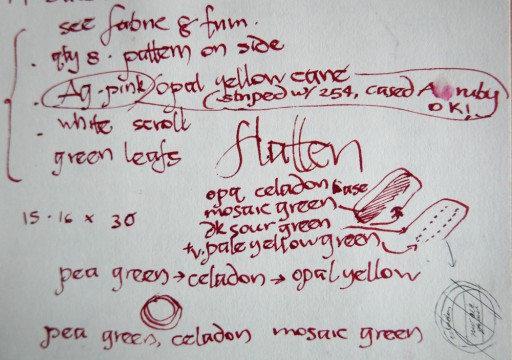 see fabric & frnm.
. qty 8 . pattern on side
. Ag. pink opal yellow cane
(striped w/ 254, cased A ruby
OK!
. white scroll
green leafs
flatten
opq celadon base
mosaic green
dk sour green
tv. pale yellow green
15 . 16 x 30
pea green → celadon → opal yellow
pea green, celadon mosaic green